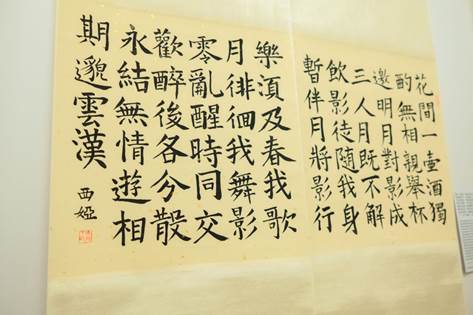 花間一壺酒獨
酌無相親舉杯
邀明月對影成
三人月既不解
飲影徒隨我身
暫伴月將影行
樂湏及春我歌
月徘徊我舞影
零亂醒時同交
歡醉後各分散
永結無情遊相
期邈雲漢
西婭